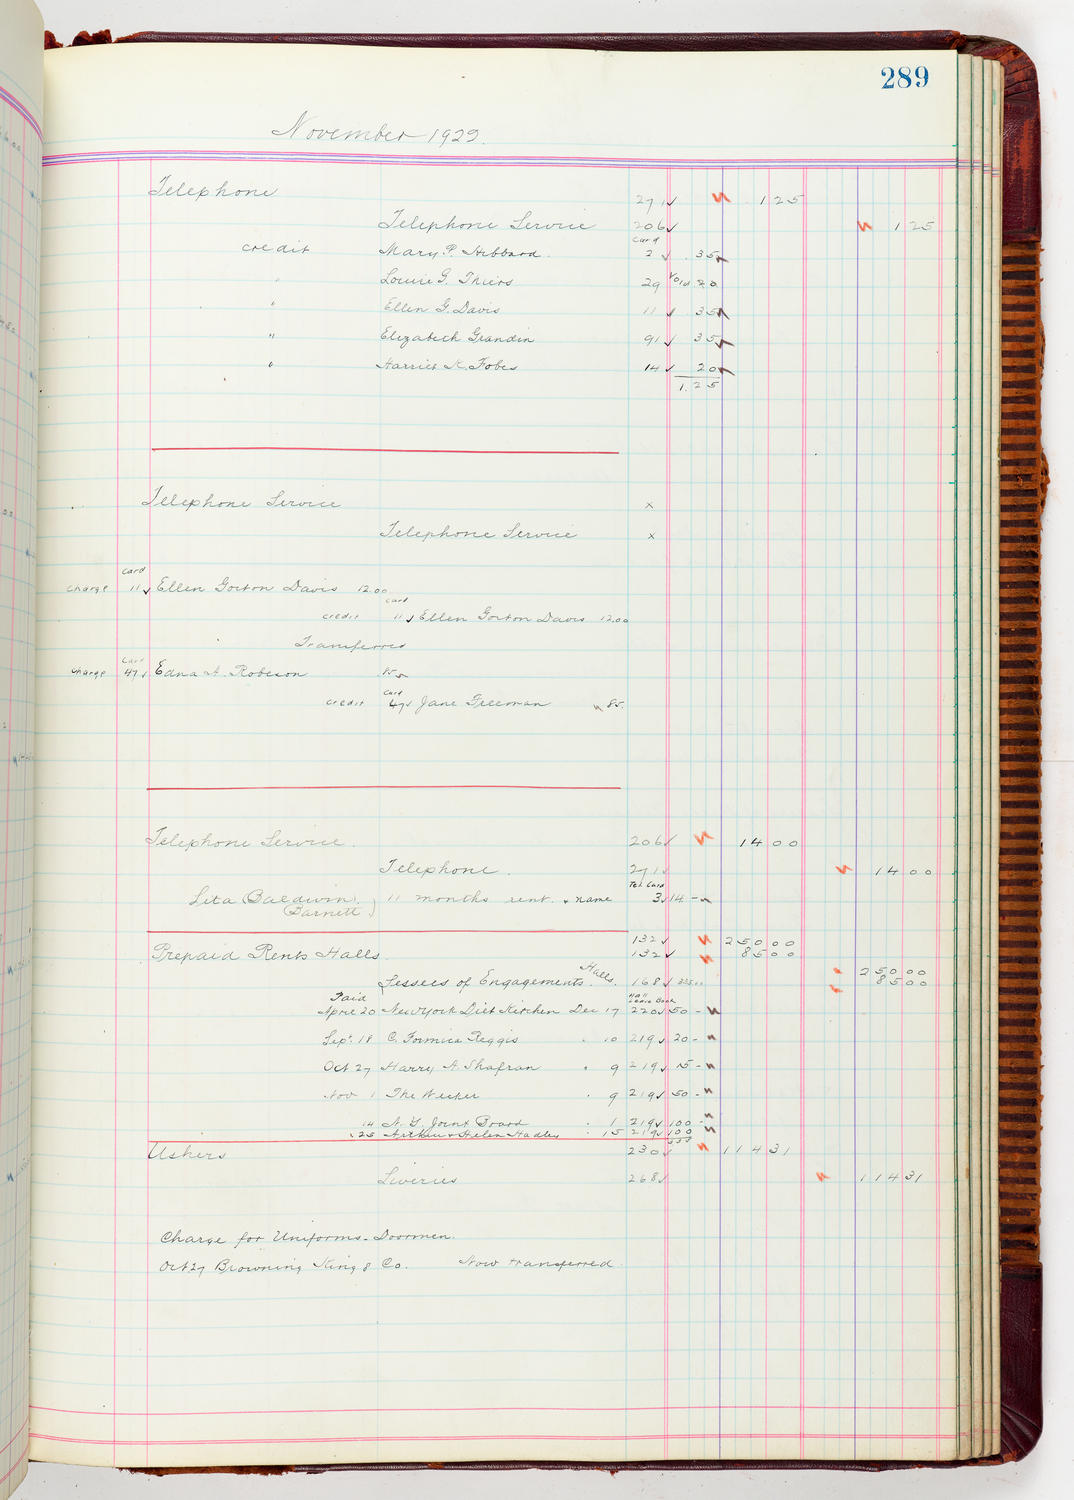 289
November 1922.
Telephone 271 ✓ 1 25
Telephone Service 206 ✓ 1 25
Card
credit Mary P. Hibbard. 2 ✓ .35
" Louise G. Thiers 29 Void 20
" Ellen G. Davis 11 ✓ 35
" Elizabeth Grandin 91 ✓ 35
" Harriet K. Fobes 14 ✓ 20
1.25
Telephone Service x
Telephone Service x
Card
Charge 11 ✓ Ellen Gorton Davis 12.00
Card
credit 11 ✓ Ellen Gorton Davis 12.00
Transferred
Card
Charge 47 ✓ Edna A. Robeson 85
Card
credit 47 ✓ Jane Freeman 85.
Telephone Service. 206 ✓ 14 00
Telephone. 271 ✓ 14 00
Tel. Card
Lita Baldwin 11 months rent. & name 3 ✓ 14 -
Barnett
132 ✓ 250 00
Prepaid Rents Halls 132 ✓ 85 00
Halls. 250 00
Lessees of Engagements. 168 ✓ 335.00 85 00
Paid Hall Lease Book
April 20 New York Diet Kitchen Dec 17 220 ✓ 50 -
Sept. 18 C. Formica Reggis " 10 219 ✓ 20 -
Oct 27 Harry A Shafran " 9 219 ✓ 15 -
Nov 1 The " 9 219 ✓ 50 -
14 N. Y. Joint Board " 1 219 ✓ 100 -
25 Arthur & Helen Hadley " 15 219 ✓ 100
335
Ushers 230 ✓ 114 31
Liveries 268 ✓ 114 31
Charge for Uniforms - Doormen.
Oct 27 Browning King & Co. Now transferred